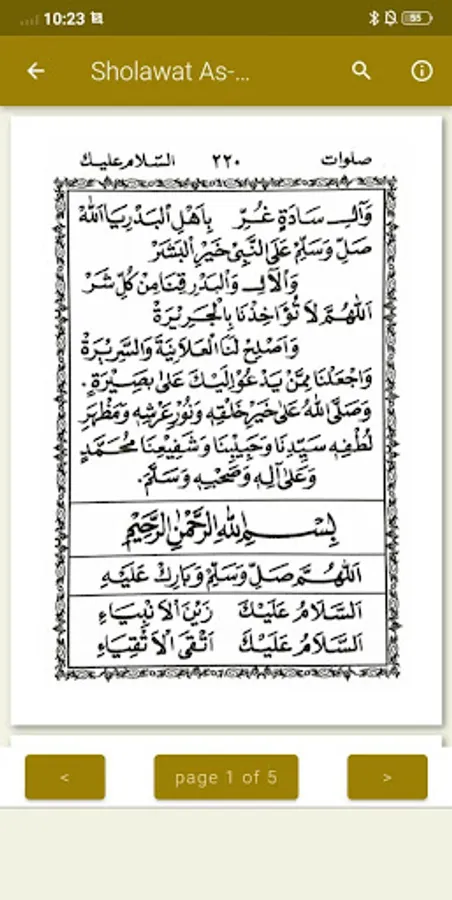 10:23
55
Sholawat As-...
صلوات ٢٢٠ السّلام عليك
وَآلِ سَادَةٍ غُرِّ بِاَهْلِ الْبَدْرِ يَا اَللهْ
صَلِّ وَسَلِّمْ عَلَى النَّبِيْ خَيْرِ الْبَشَرْ
وَالْآلِ وَالْبَدْرِ قِنَا مِنْ كُلِّ شَرْ
اَللّٰهُمَّ لَا تُؤَاخِذْنَا بِالْجَرِيْرَةْ
وَاَصْلِحْ لَنَا الْعَلَانِيَةَ وَالسَّرِيْرَةْ
وَاجْعَلْنَا مِمَّنْ يَدْعُوْ اِلَيْكَ عَلَى بَصِيْرَةٍ.
وَصَلَّى اللهُ عَلَى خَيْرِ خَلْقِهِ وَنُوْرِ عَرْشِهِ وَمَظْهَرِ
لُطْفِهِ سَيِّدِنَا وَحَبِيْبِنَا وَشَفِيْعِنَا مُحَمَّدٍ
وَعَلَى آلِهِ وَصَحْبِهِ وَسَلَّمَ.
بِسْمِ اللهِ الرَّحْمٰنِ الرَّحِيْمِ
اَللّٰهُمَّ صَلِّ وَسَلِّمْ وَبَارِكْ عَلَيْهِ
اَلسَّلَامُ عَلَيْكَ زَيْنَ الْاَنْبِيَاءِ
اَلسَّلَامُ عَلَيْكَ اَتْقَى الْاَتْقِيَاءِ
< page 1 of 5 >